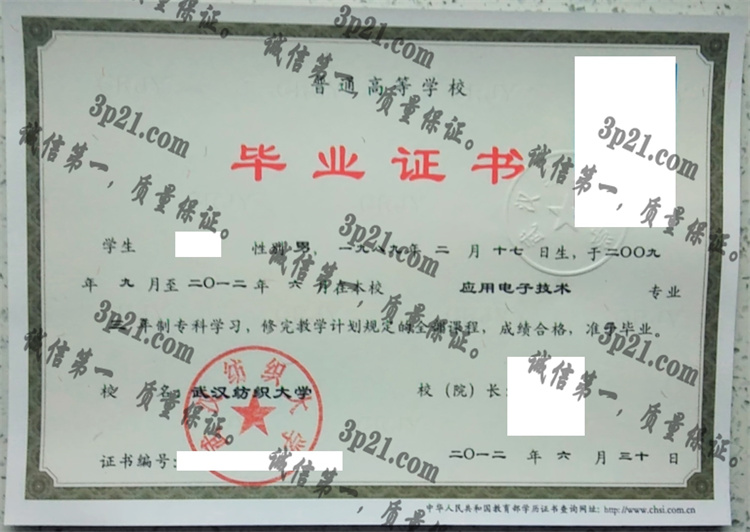 普通高等学校
毕业证书
学生 性别 男 一九八九年 二 月 十七 日生，于二〇〇九
年 九 月至 二〇一二 年 六 月在本校 应用电子技术 专业
三 年制专科学习，修完教学计划规定的全部课程，成绩合格，准予毕业。
校 名：武汉纺织大学 校（院）长：
证书编号：
二〇一二 年 六 月 三十 日
中华人民共和国教育部学历证书查询网址：http://www.chsi.com.cn
武汉纺织大学
3p21.com
诚信第一，质量保证。
3p21.com
诚信第一，质量保证。
3p21.com
诚信第一，质量保证。
3p21.com
诚信第一，质量保证。
3p21.com
诚信第一，质量保证。
3p21.com
诚信第一，质量保证。
3p21.com
诚信第一，质量保证。
3p21.com
诚信第一，质量保证。